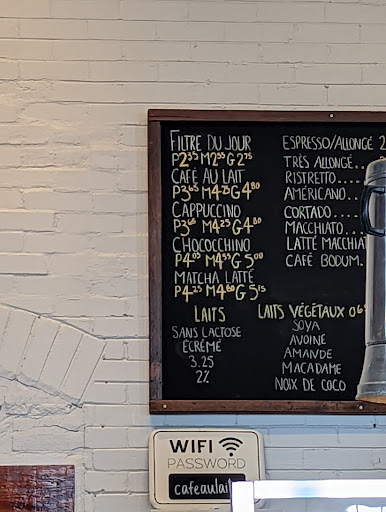 FILTRE DU JOUR
P2³⁵ M2⁵⁵ G2⁷⁵
CAFÉ AU LAIT
P3⁶⁵ M4²⁵ G4⁸⁰
CAPPUCCINO
P3⁶⁵ M4²⁵ G4⁸⁰
CHOCOCCHINO
P4⁰⁵ M4⁵⁵ G5⁰⁰
MATCHA LATTÉ
P4²⁵ M4⁸⁰ G5¹⁵
LAITS
SANS LACTOSE
ÉCRÉMÉ
3.25
2%
ESPRESSO/ALLONGÉ 2
TRÈS ALLONGÉ...
RISTRETTO....
AMÉRICANO...
CORTADO.....
MACCHIATO....
LATTÉ MACCHIAT
CAFÉ BODUM.
LAITS VÉGÉTAUX 0
SOYA
AVOINE
AMANDE
MACADAME
NOIX DE COCO
WIFI
PASSWORD
cafeaulait